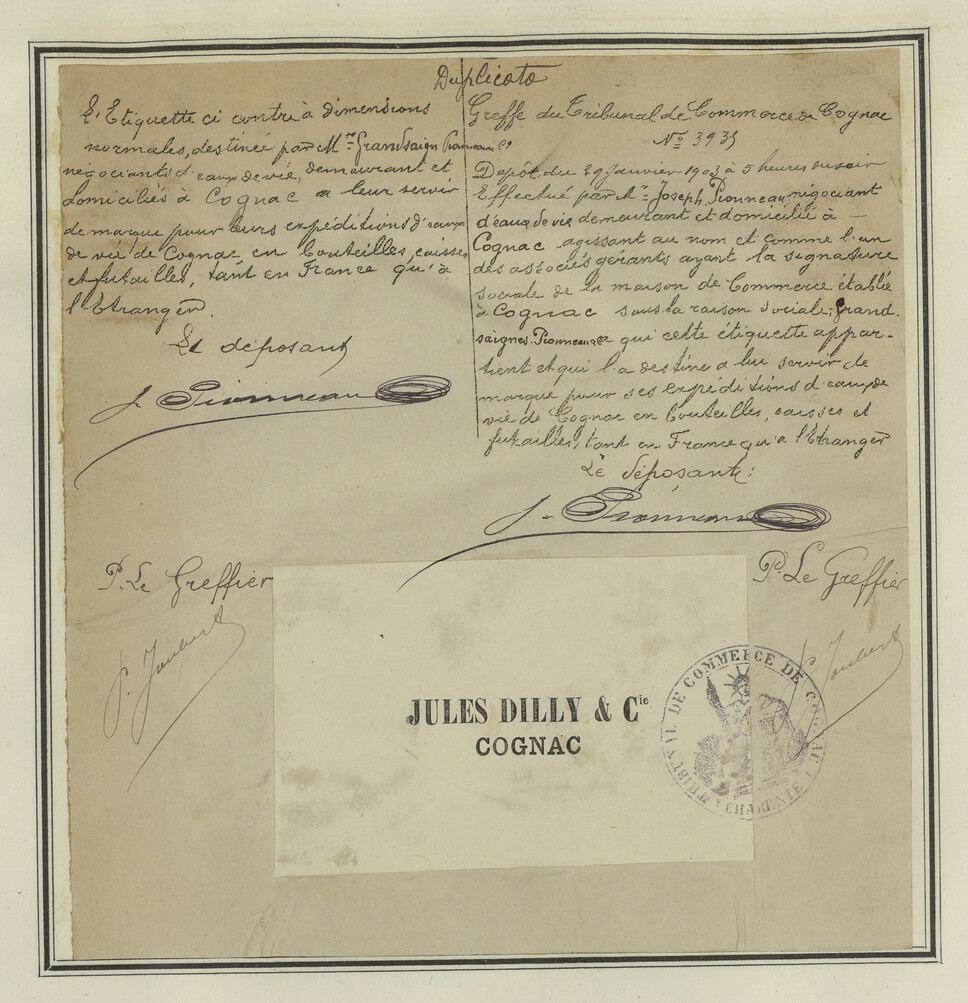 Duplicata
L'Etiquette ci contre à dimensions
normales, destinée par Mrs Grandsaign Pionneau Cie
négociants d'eaux de vie, demeurant et
domiciliés à Cognac a leur servir
de marque pour leurs expéditions d'eaux
de vie de Cognac en bouteilles, caisses
et futailles, tant en France qu'à
l'Etranger.
Le déposant
J. Pionneau
P. Le Greffier
P. Joubert
Greffe du Tribunal de Commerce de Cognac
No 3935
Depôt du 29 Janvier 1903 à 5 heures du soir
Effectué par Mr Joseph Pionneau, négociant
d'eaux de vie demeurant et domicilié à
Cognac agissant au nom et comme l'un
des associés gérants ayant la signature
sociale de la maison de Commerce établie
à Cognac sous la raison sociale; Grand-
saignes Pionneau a qui cette étiquette appar-
tient et qui l'a destine a lui servir de
marque pour ses expéditions d'eaux de
vie de Cognac en bouteilles, caisses et
futailles, tant en France qu'a l'Etranger
Le déposant:
J. Pionneau
P. Le Greffier
P. Joubert
JULES DILLY & Cie
COGNAC
TRIBUNAL DE COMMERCE DE COGNAC
(CHARENTE)